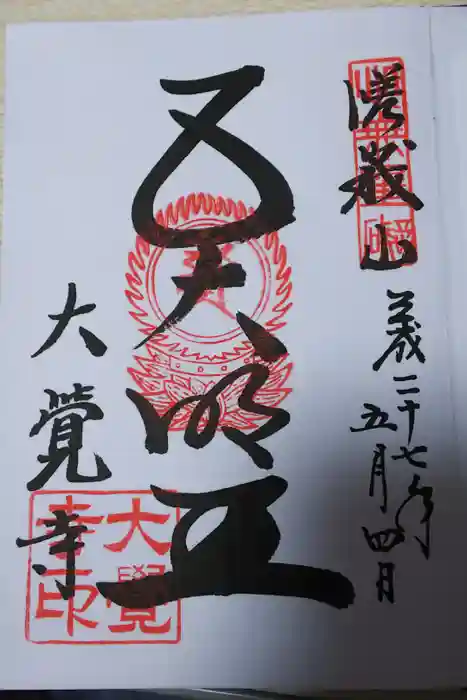 嵯峨山
平成二十七年
五月四日
五大明王
大覺寺
大覺
寺印